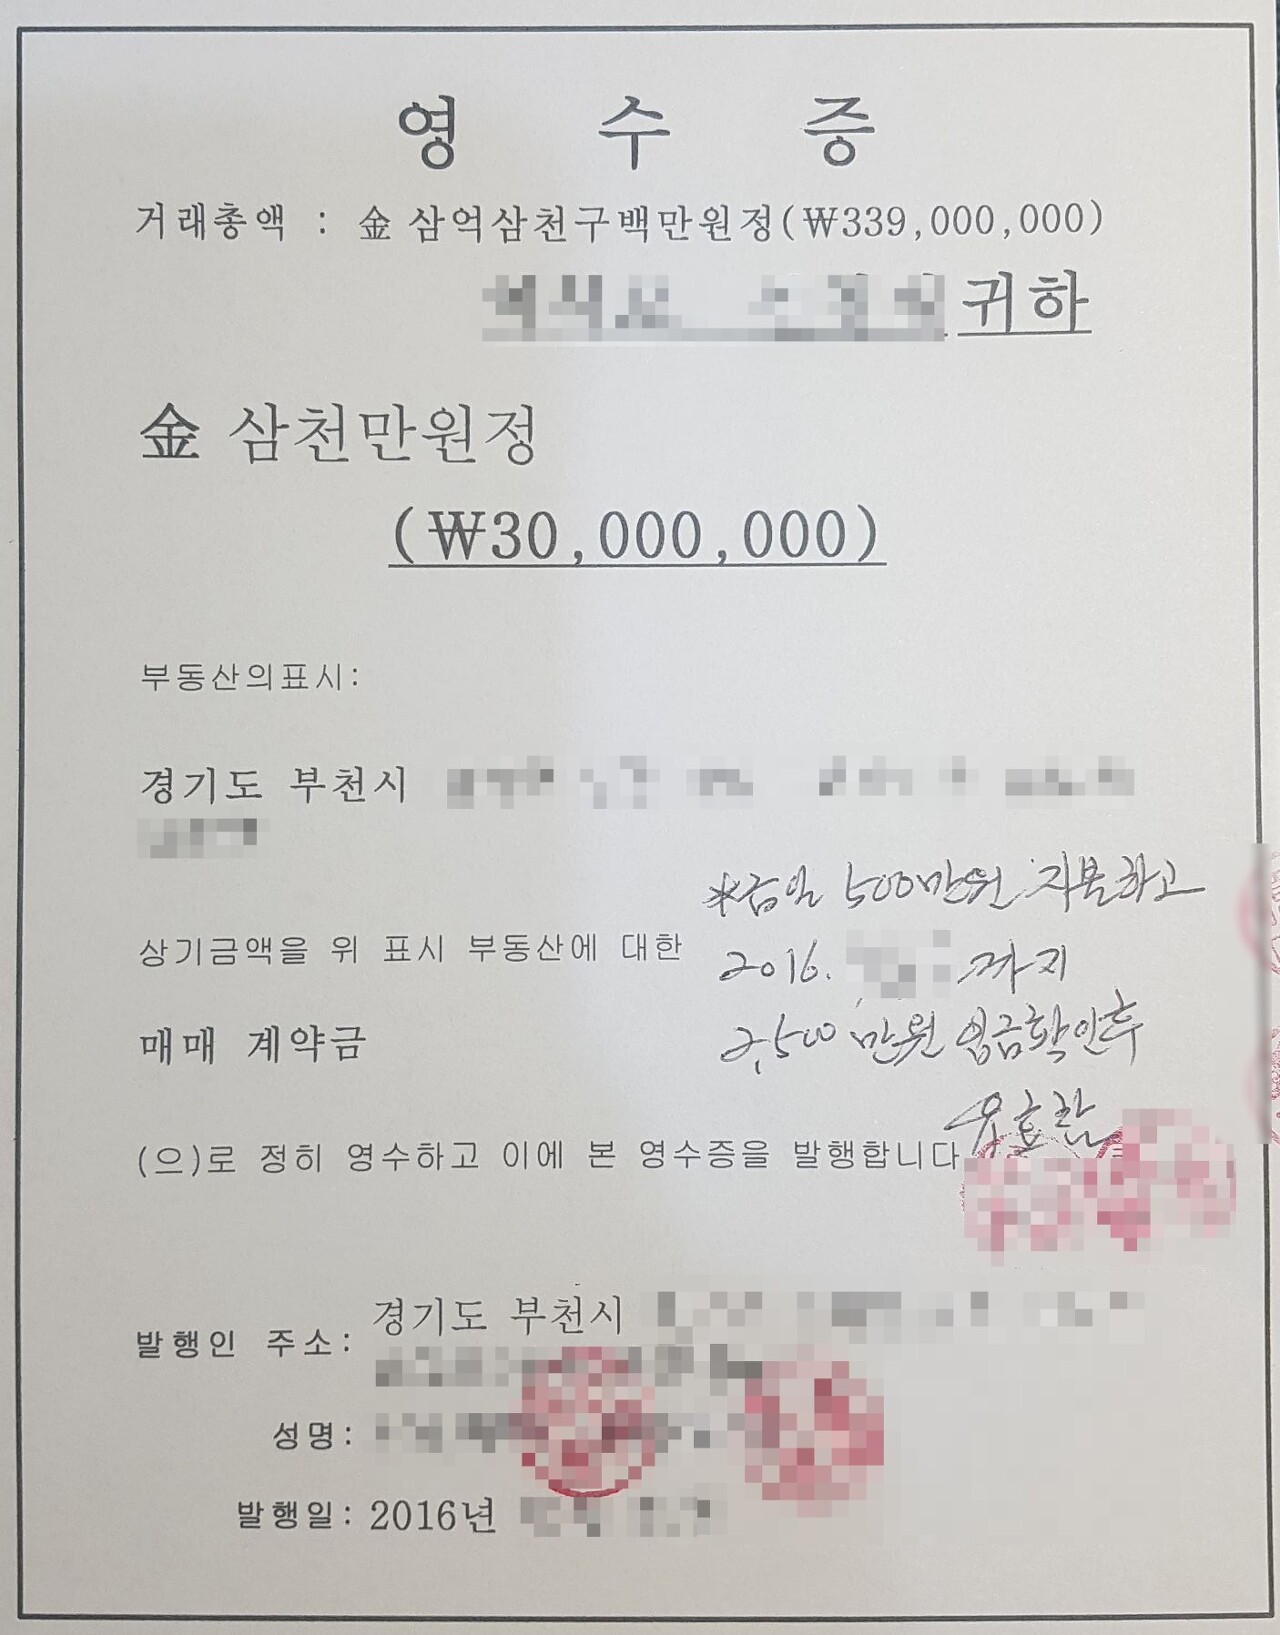 영 수 증
거래총액 : 金 삼억삼천구백만원정(₩339,000,000)
귀하
金 삼천만원정
(₩30,000,000)
부동산의표시:
경기도 부천시
*금일 500만원 지불하고
상기금액을 위 표시 부동산에 대한
2016. 까지
매매 계약금
2,500만원 입금확인후
유효함
(으)로 정히 영수하고 이에 본 영수증을 발행합니다
발행인 주소: 경기도 부천시
성명:
발행일: 2016년